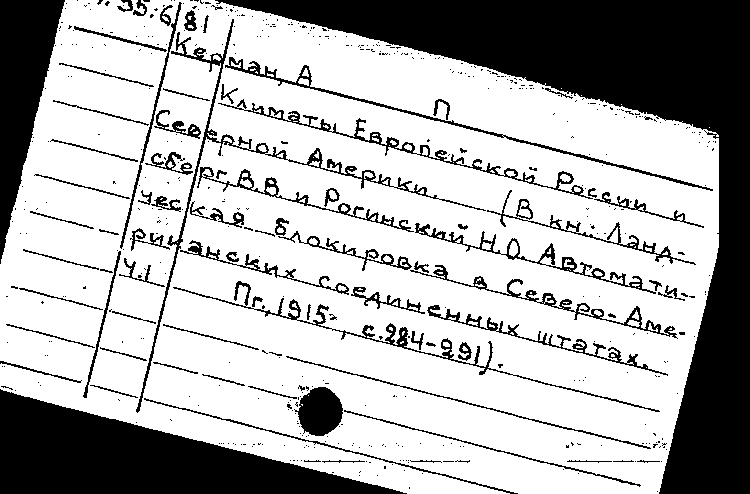 55:6/81
Керман, А П.
Климаты Европейской России и
Северной Америки. (В кн.: Ланд-
сберг, В.В. и Рогинский, Н.О. Автомати-
ческая блокировка в Северо-Аме-
риканских соединенных штатах.
Ч.1 Пг., 1915, с.284-291).